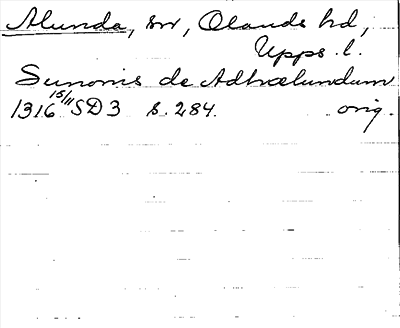 Alunda, sn, Olands hd,
Upps. l.
Sunonis de Adhælundum
1316 15/11 SD 3 s. 284. orig.